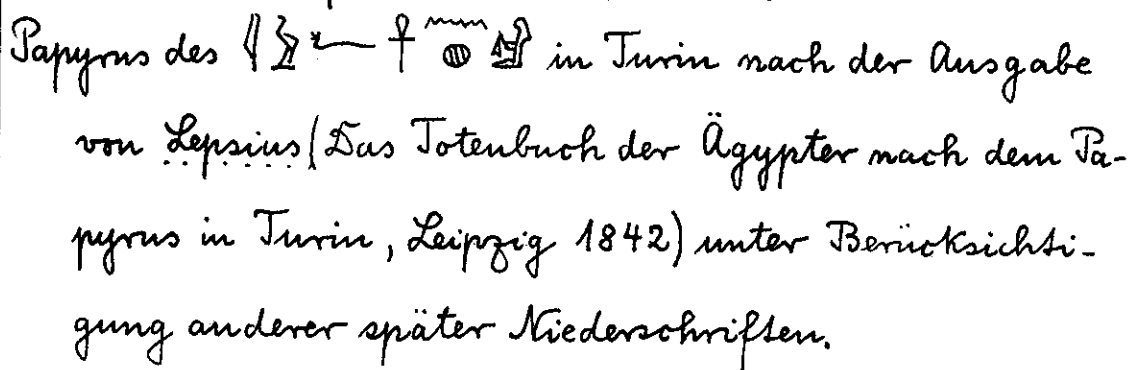 Papyrus des 𓇋𓅱𓆑𓋹𓈖𓐍𓀀 in Turin nach der Ausgabe
von Lepsius (Das Totenbuch der Ägypter nach dem Pa-
pyrus in Turin, Leipzig 1842) unter Berücksichti-
gung anderer später Niederschriften.